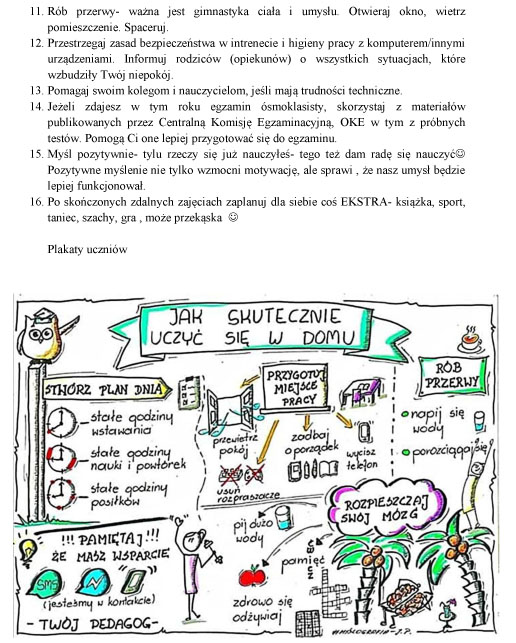 11. Rób przerwy- ważna jest gimnastyka ciała i umysłu. Otwieraj okno, wietrz
pomieszczenie. Spaceruj.
12. Przestrzegaj zasad bezpieczeństwa w intrenecie i higieny pracy z komputerem/innymi
urządzeniami. Informuj rodziców (opiekunów) o wszystkich sytuacjach, które
wzbudziły Twój niepokój.
13. Pomagaj swoim kolegom i nauczycielom, jeśli mają trudności techniczne.
14. Jeżeli zdajesz w tym roku egzamin ósmoklasisty, skorzystaj z materiałów
publikowanych przez Centralną Komisję Egzaminacyjną, OKE w tym z próbnych
testów. Pomogą Ci one lepiej przygotować się do egzaminu.
15. Myśl pozytywnie- tylu rzeczy się już nauczyłeś- tego też dam radę się nauczyć☺
Pozytywne myślenie nie tylko wzmocni motywację, ale sprawi , że nasz umysł będzie
lepiej funkcjonował.
16. Po skończonych zdalnych zajęciach zaplanuj dla siebie coś EKSTRA- książka, sport,
taniec, szachy, gra , może przekąska ☺
Plakaty uczniów
JAK SKUTECZNIE
UCZYĆ SIĘ W DOMU
STWÓRZ PLAN DNIA
stałe godziny
wstawania
stałe godziny
nauki i powtórek
stałe godziny
posiłków
PRZYGOTUJ
MIEJSCE
PRACY
przewietrz
pokój
zadbaj
o porządek
wycisz
telefon
usuń
rozpraszacze
RÓB
PRZERWY
napij się
wody
porozciągaj się
!!! PAMIĘTAJ !!!
ŻE MASZ WSPARCIE
SMS
(jesteśmy w kontakcie)
- TWÓJ PEDAGOG-
ROZPIESZCZAJ
SWÓJ MÓZG
pij dużo
wody
pamięć
zdrowo się
odżywiaj